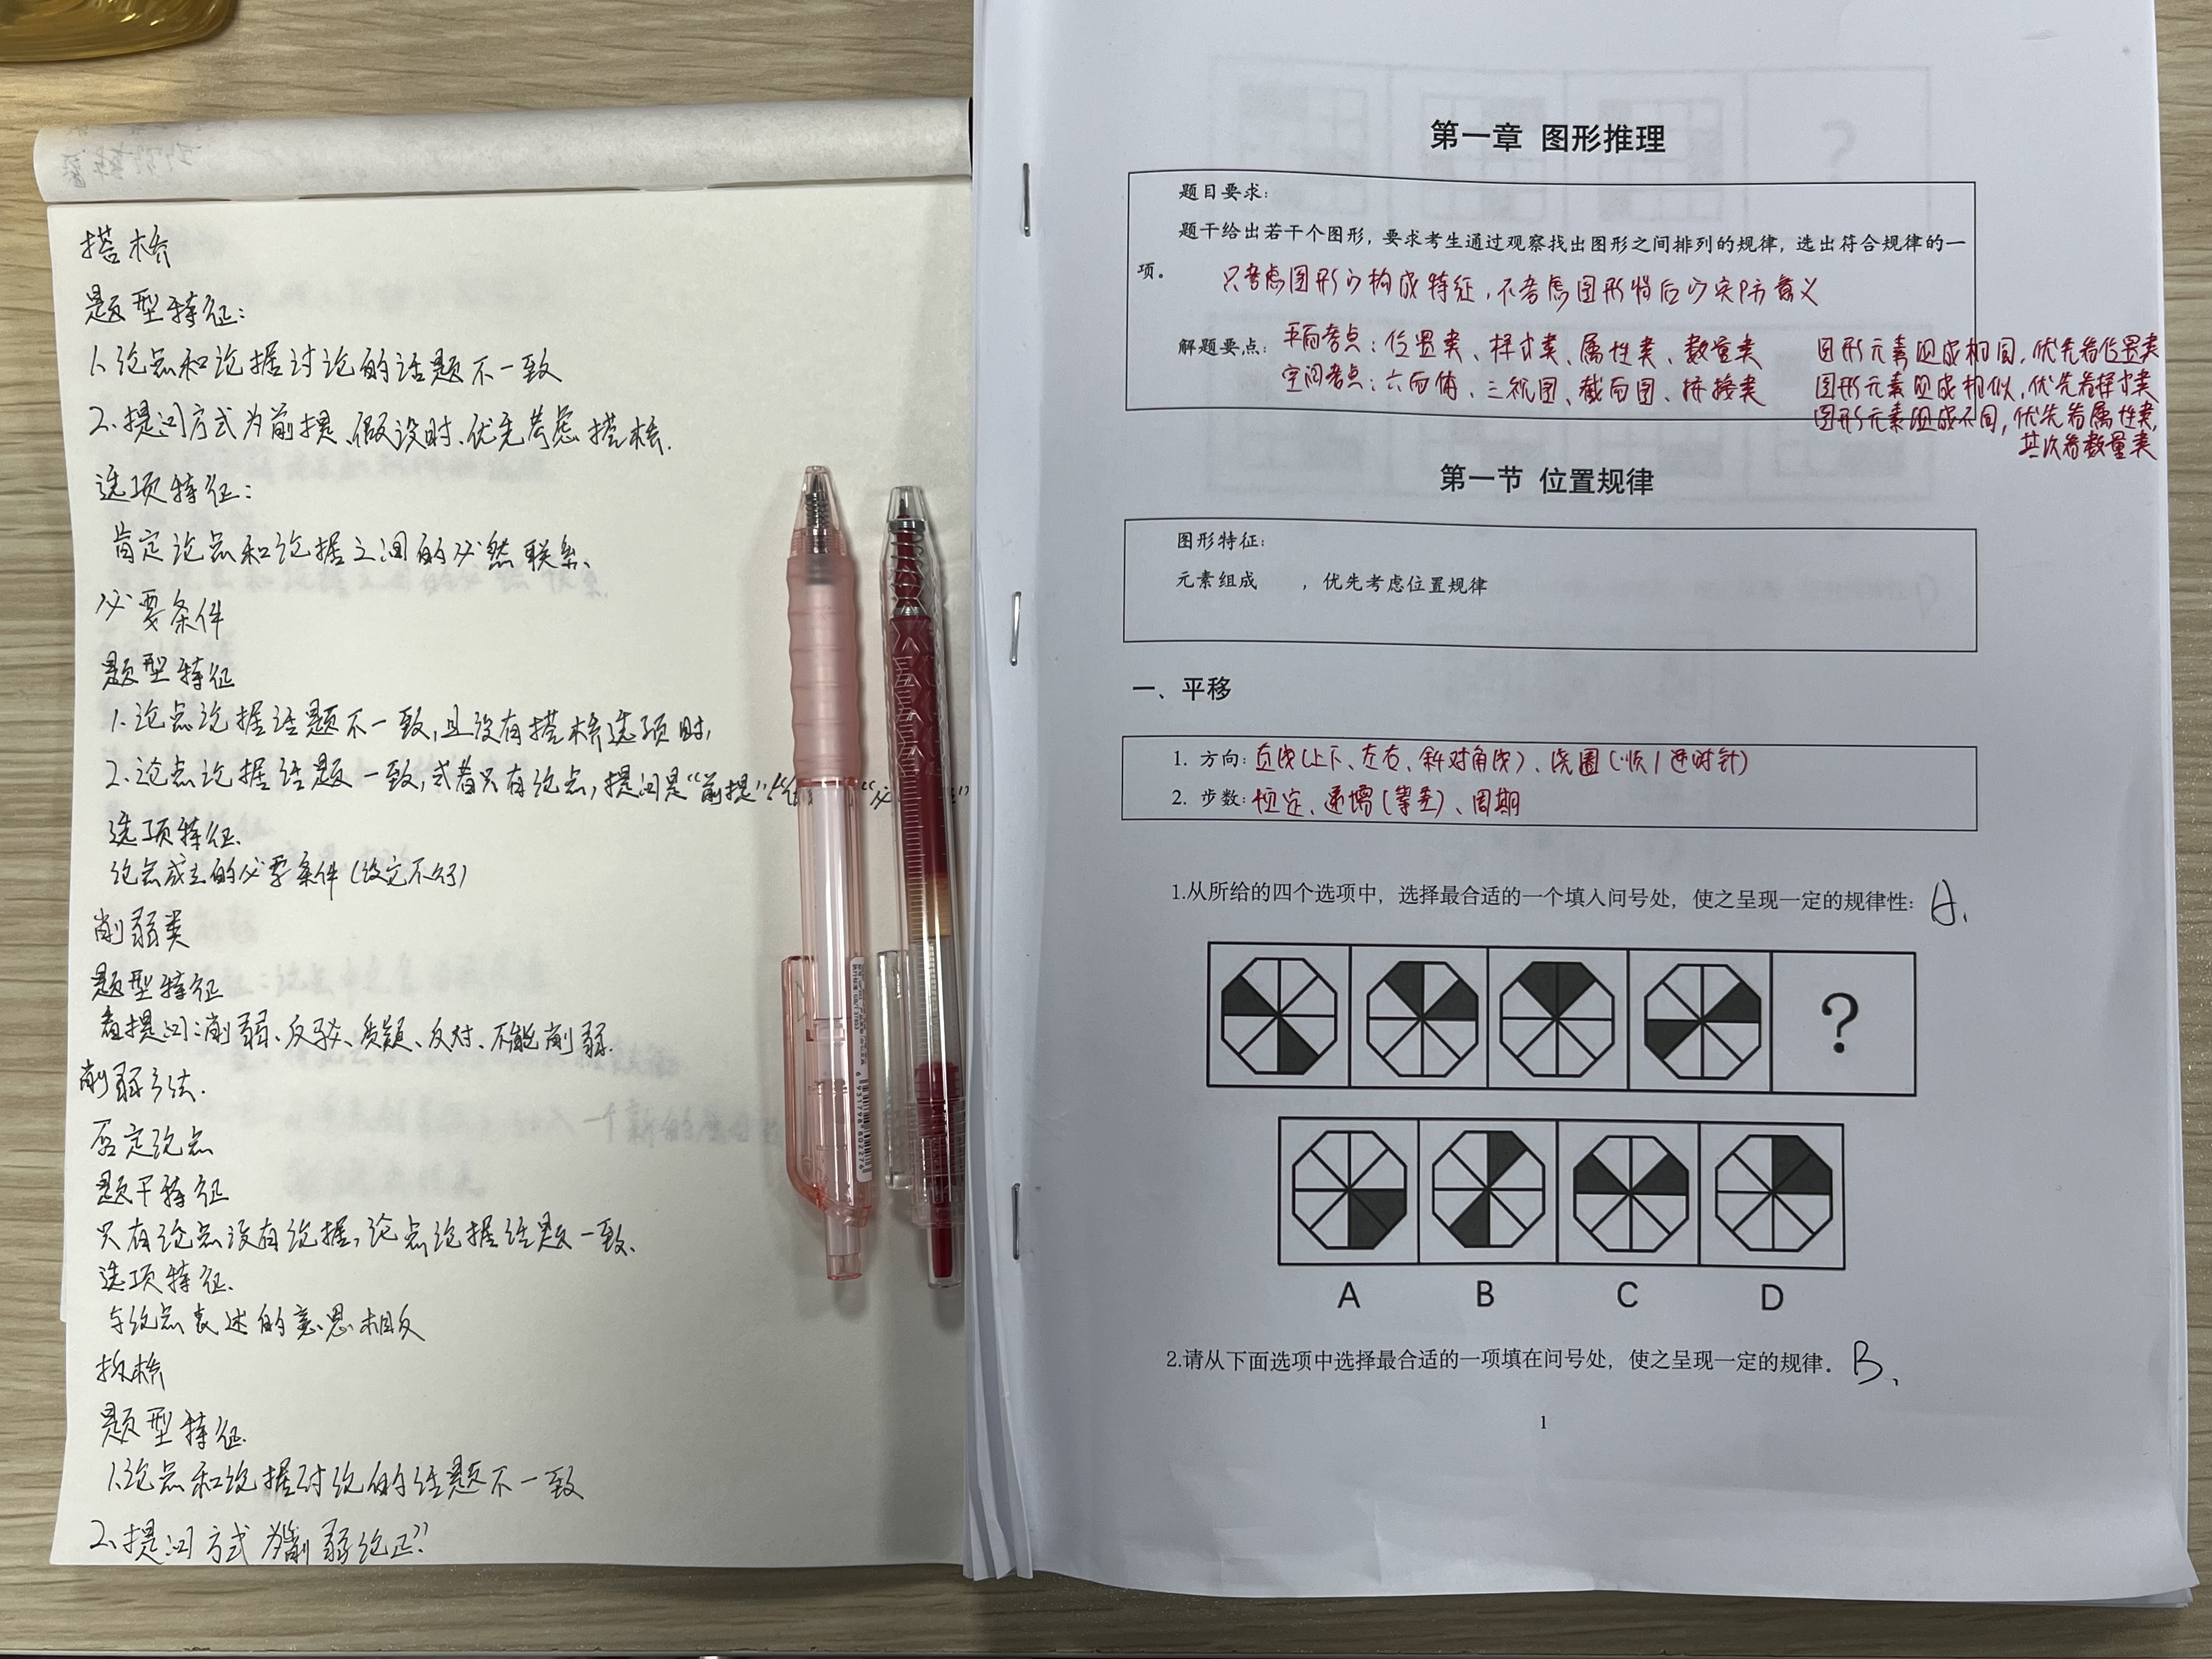 搭桥
题型特征:
1.论点和论据讨论的话题不一致
2.提问方式为前提、假设时、优先考虑搭桥.
选项特征:
肯定论点和论据之间的必然联系、
必要条件
题型特征
1.论点论据话题不一致,且没有搭桥选项时,
2.论点论据话题一致,或者只有论点,提问是“前提”
选项特征.
论点成立的必要条件(没它不行)
削弱类
题型特征
看提问:削弱、反驳、质疑、反对、不能削弱.
削弱方法.
否定论点
题干特征
只有论点没有论据,论点论据话题一致、
选项特征.
与论点表述的意思相反
拆桥
题型特征.
1.论点和论据讨论的话题不一致
2.提问方式为“削弱论证”?
第一章 图形推理
题目要求:
题干给出若干个图形，要求考生通过观察找出图形之间排列的规律，选出符合规律的一
项。 只考虑图形的构成特征,不考虑图形背后的实际意义
解题要点: 平面考点:位置类、样式类、属性类、数量类
空间考点:六面体、三视图、截面图、拼接类
图形元素组成相同,优先看位置类
图形元素组成相似,优先看样式类
图形元素组成不同,优先看属性类,
其次看数量类
第一节 位置规律
图形特征:
元素组成 ，优先考虑位置规律
一、平移
1. 方向:直线(上下、左右、斜对角线)、绕圈(顺/逆时针)
2. 步数:恒定、递增(等差)、周期
1.从所给的四个选项中，选择最合适的一个填入问号处，使之呈现一定的规律性: A.
?
A B C D
2.请从下面选项中选择最合适的一项填在问号处，使之呈现一定的规律. B、
1